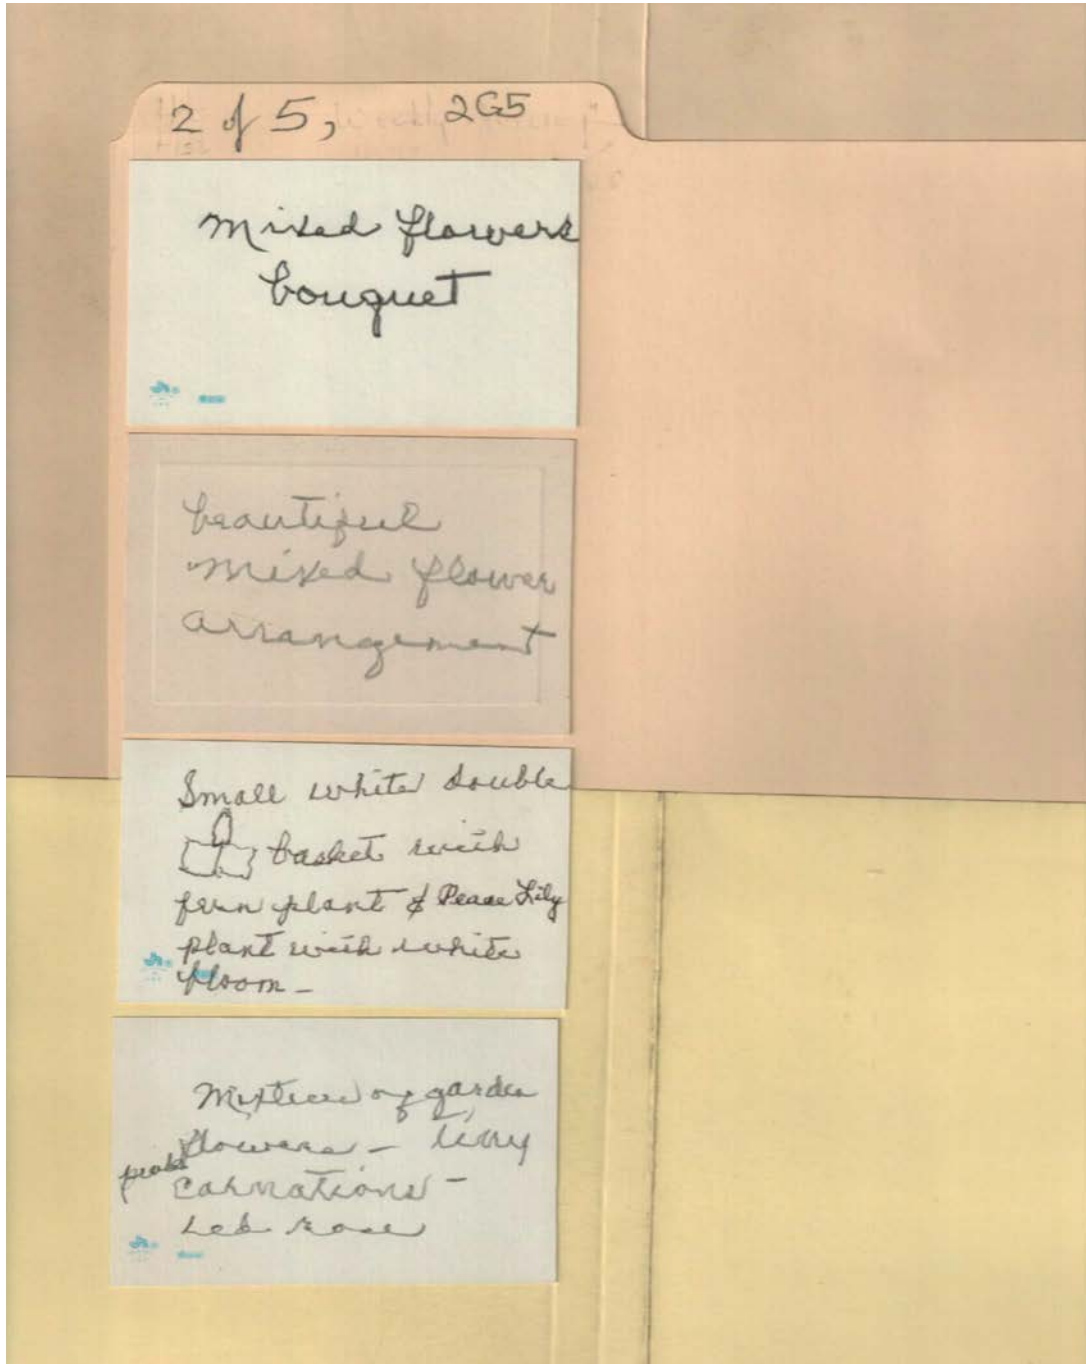 2 of 5, 2G5
Mixed flowers
bouquet
beautiful
mixed flower
arrangement
Small white double
basket with
fern plant & Peace Lily
plant with white
bloom -
Mixture of garden
flowers -
carnations -
red rose